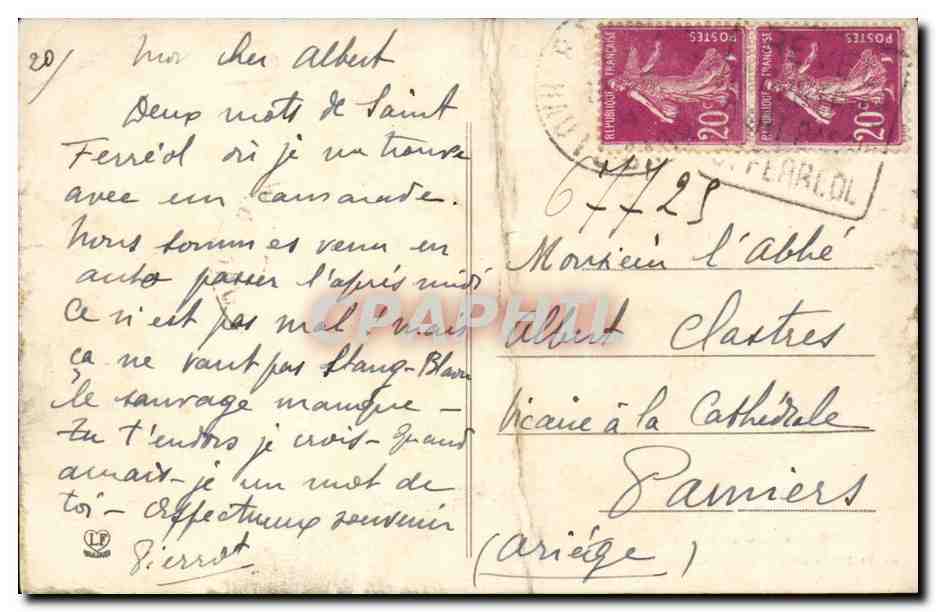 20/
Mon cher Albert
Deux mots de Saint
Ferréol où je me trouve
avec un camarade.
Nous sommes venu en
auto passer l'après midi
Ce n'est pas mal ! mais
ça ne vaut pas Stang-
le sauvage manque -
Tu t'endors je crois - Quand
aurais-je un mot de
toi - Affectueux souvenir
Pierrot
LF
RÉPUBLIQUE FRANÇAISE
POSTES
20c
RÉPUBLIQUE FRANÇAISE
POSTES
20c
Monsieur l'Abbé
Albert Clastres
Vicaire à la Cathédrale
Pamiers
(Ariège)
CPAPHIL